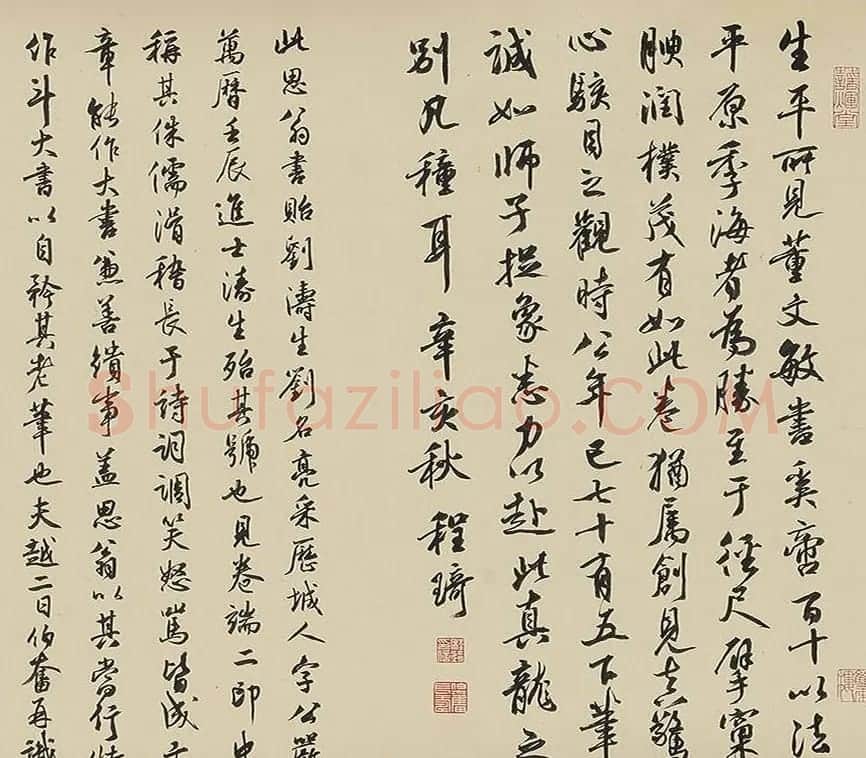 生平所見董文敏書奚啻百十以法
平原季海者為勝至于徑尺擘窠
腴潤樸茂有如此卷猶屬創見真驚
心駭目之觀時公年已七十有五下筆
誠如師子捉象悉力以赴此真龍之
別凡種耳辛亥秋程琦
此思翁書貽劉濤生劉名亮采歷城人字公嚴
萬曆壬辰進士濤生殆其號也見卷端二印史
稱其侏儒滑稽長于詩詞調笑怒罵皆成文
章能作大書兼善繢事蓋思翁以其當行
作斗大書以自矜其老筆也夫越二日伯奮再識
Shufaziliao.COM